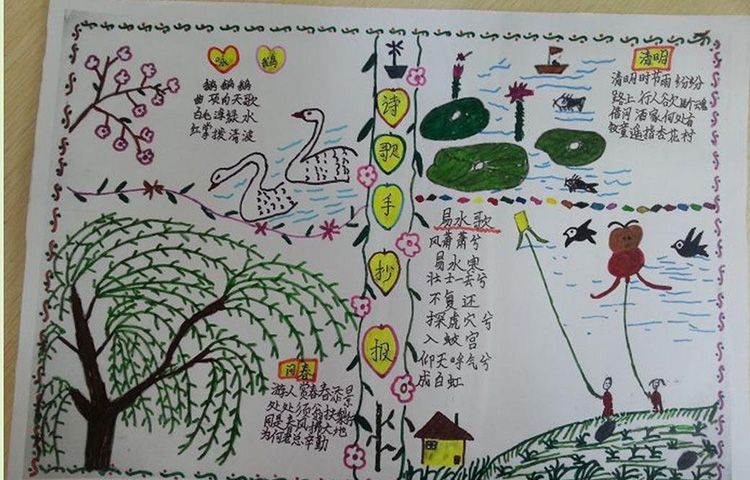 咏鹅
鹅鹅鹅
曲项向天歌
白毛浮绿水
红掌拨清波
诗
歌
手
抄
报
清明
清明时节雨纷纷
路上行人欲断魂
借问酒家何处有
牧童遥指杏花村
易水歌
风萧萧兮
易水寒
壮士一去兮
不复还
探虎穴兮
入蛟宫
仰天呼气兮
成白虹
问春
游人赏春春添景
处处须翁扶梨
同是春风拂大地
为何君总辛勤